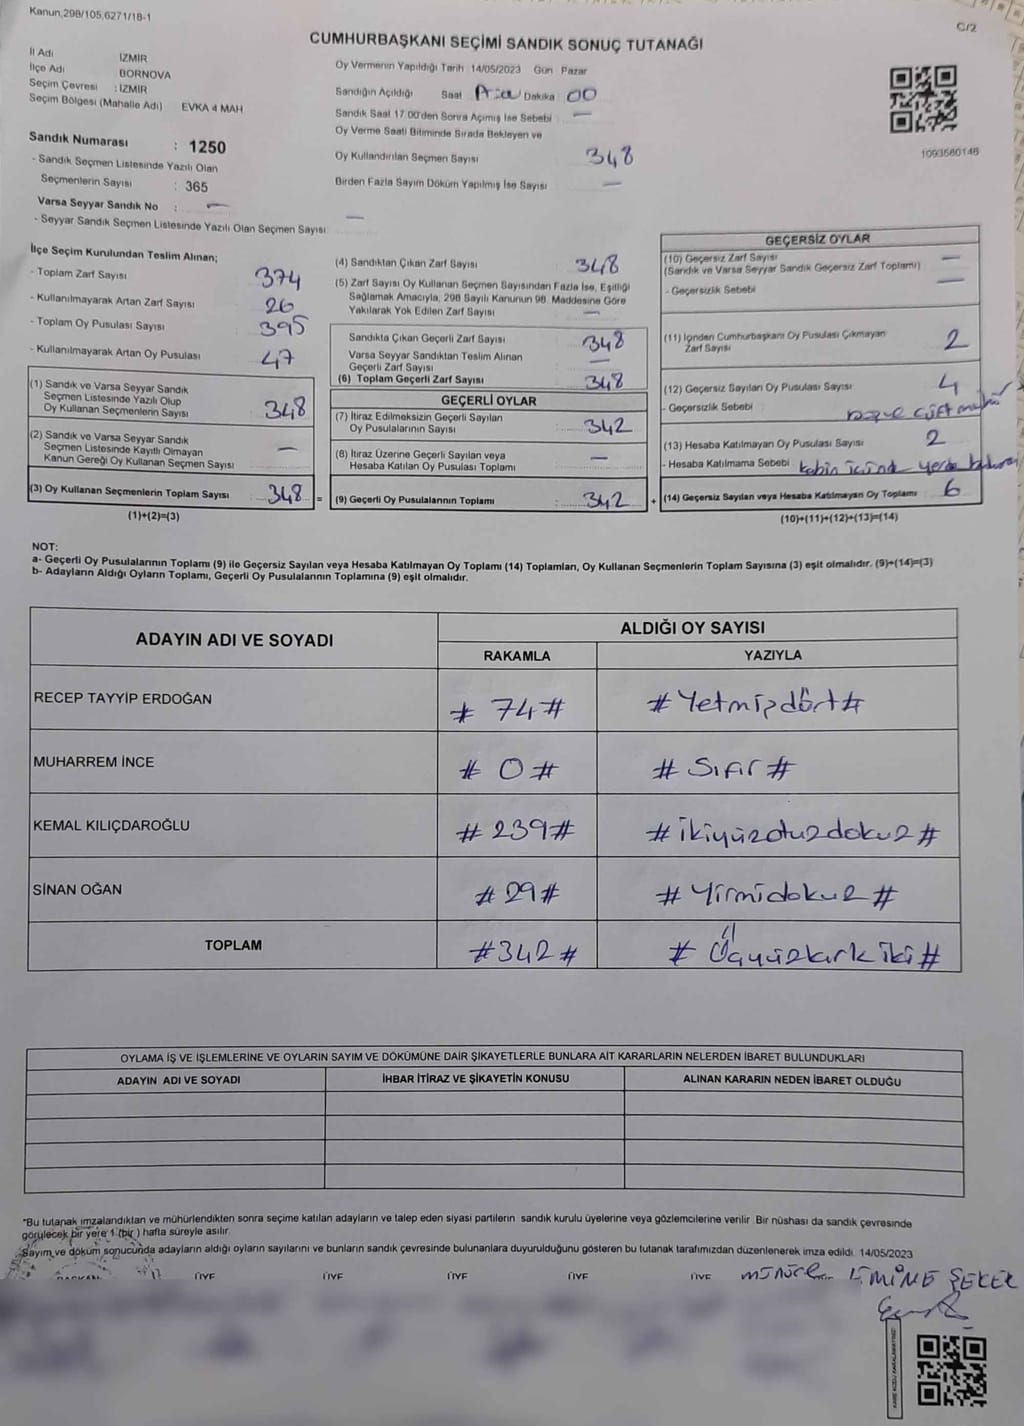 Kanun,298/105,6271/18-1
C/2
CUMHURBAŞKANI SEÇİMİ SANDIK SONUÇ TUTANAĞI
İl Adı İZMİR
İlçe Adı BORNOVA
Seçim Çevresi : İZMİR
Seçim Bölgesi (Mahalle Adı) EVKA 4 MAH
Sandık Numarası : 1250
- Sandık Seçmen Listesinde Yazılı Olan
Seçmenlerin Sayısı : 365
Varsa Seyyar Sandık No : —
- Seyyar Sandık Seçmen Listesinde Yazılı Olan Seçmen Sayısı: —
Oy Vermenin Yapıldığı Tarih 14/05/2023 Gün Pazar
Sandığın Açıldığı Saat Dakika : 00
Sandık Saat 17.00'den Sonra Açımış İse Sebebi : —
Oy Verme Saati Bitiminde Sırada Bekleyen ve
Oy Kullandırılan Seçmen Sayısı 348
Birden Fazla Sayım Döküm Yapılmış İse Sayısı —
1093580146
İlçe Seçim Kurulundan Teslim Alınan;
- Toplam Zarf Sayısı 374
- Kullanılmayarak Artan Zarf Sayısı 26
- Toplam Oy Pusulası Sayısı 395
- Kullanılmayarak Artan Oy Pusulası 47
(1) Sandık ve Varsa Seyyar Sandık
Seçmen Listesinde Yazılı Olup
Oy Kullanan Seçmenlerin Sayısı 348
(2) Sandık ve Varsa Seyyar Sandık
Seçmen Listesinde Kayıtlı Olmayan
Kanun Gereği Oy Kullanan Seçmen Sayısı —
(3) Oy Kullanan Seçmenlerin Toplam Sayısı 348 =
(1)+(2)=(3)
(4) Sandıktan Çıkan Zarf Sayısı 348
(5) Zarf Sayısı Oy Kullanan Seçmen Sayısından Fazla İse, Eşitliği
Sağlamak Amacıyla, 298 Sayılı Kanunun 98. Maddesine Göre
Yakılarak Yok Edilen Zarf Sayısı —
Sandıkta Çıkan Geçerli Zarf Sayısı 348
Varsa Seyyar Sandıktan Teslim Alınan
Geçerli Zarf Sayısı —
(6) Toplam Geçerli Zarf Sayısı 348
GEÇERLİ OYLAR
(7) İtiraz Edilmeksizin Geçerli Sayılan
Oy Pusulalarının Sayısı 342
(8) İtiraz Üzerine Geçerli Sayılan veya
Hesaba Katılan Oy Pusulası Toplamı —
(9) Geçerli Oy Pusulalarının Toplamı 342 +
GEÇERSİZ OYLAR
(10) Geçersiz Zarf Sayısı —
(Sandık ve Varsa Seyyar Sandık Geçersiz Zarf Toplamı)
- Geçersizlik Sebebi —
(11) İçinden Cumhurbaşkanı Oy Pusulası Çıkmayan
Zarf Sayısı 2
(12) Geçersiz Sayılan Oy Pusulası Sayısı 4
- Geçersizlik Sebebi : çift mühür
(13) Hesaba Katılmayan Oy Pusulası Sayısı 2
- Hesaba Katılmama Sebebi : kabin içinde yerde
(14) Geçersiz Sayılan veya Hesaba Katılmayan Oy Toplamı 6
(10)+(11)+(12)+(13)=(14)
NOT:
a- Geçerli Oy Pusulalarının Toplamı (9) ile Geçersiz Sayılan veya Hesaba Katılmayan Oy Toplamı (14) Toplamları, Oy Kullanan Seçmenlerin Toplam Sayısına (3) eşit olmalıdır. (9)+(14)=(3)
b- Adayların Aldığı Oyların Toplamı, Geçerli Oy Pusulalarının Toplamına (9) eşit olmalıdır.
ADAYIN ADI VE SOYADI ALDIĞI OY SAYISI
RAKAMLA YAZIYLA
RECEP TAYYİP ERDOĞAN # 74 # # Yetmişdört #
MUHARREM İNCE # 0 # # Sıfır #
KEMAL KILIÇDAROĞLU # 239 # # ikiyüzotuzdokuz #
SİNAN OĞAN # 29 # # Yirmidokuz #
TOPLAM # 342 # # Üçyüzkırkiki #
OYLAMA İŞ VE İŞLEMLERİNE VE OYLARIN SAYIM VE DÖKÜMÜNE DAİR ŞİKAYETLERLE BUNLARA AİT KARARLARIN NELERDEN İBARET BULUNDUKLARI
ADAYIN ADI VE SOYADI İHBAR İTİRAZ VE ŞİKAYETİN KONUSU ALINAN KARARIN NEDEN İBARET OLDUĞU
*Bu tutanak imzalandıktan ve mühürlendikten sonra seçime katılan adayların ve talep eden siyasi partilerin sandık kurulu üyelerine veya gözlemcilerine verilir. Bir nüshası da sandık çevresinde
görülecek bir yere 1 (bir) hafta süreyle asılır.
Sayım ve döküm sonucunda adayların aldığı oyların sayılarını ve bunların sandık çevresinde bulunanlara duyurulduğunu gösteren bu tutanak tarafımızdan düzenlenerek imza edildi. 14/05/2023
BAŞKAN ÜYE ÜYE ÜYE ÜYE ÜYE EMİNE ŞEKER